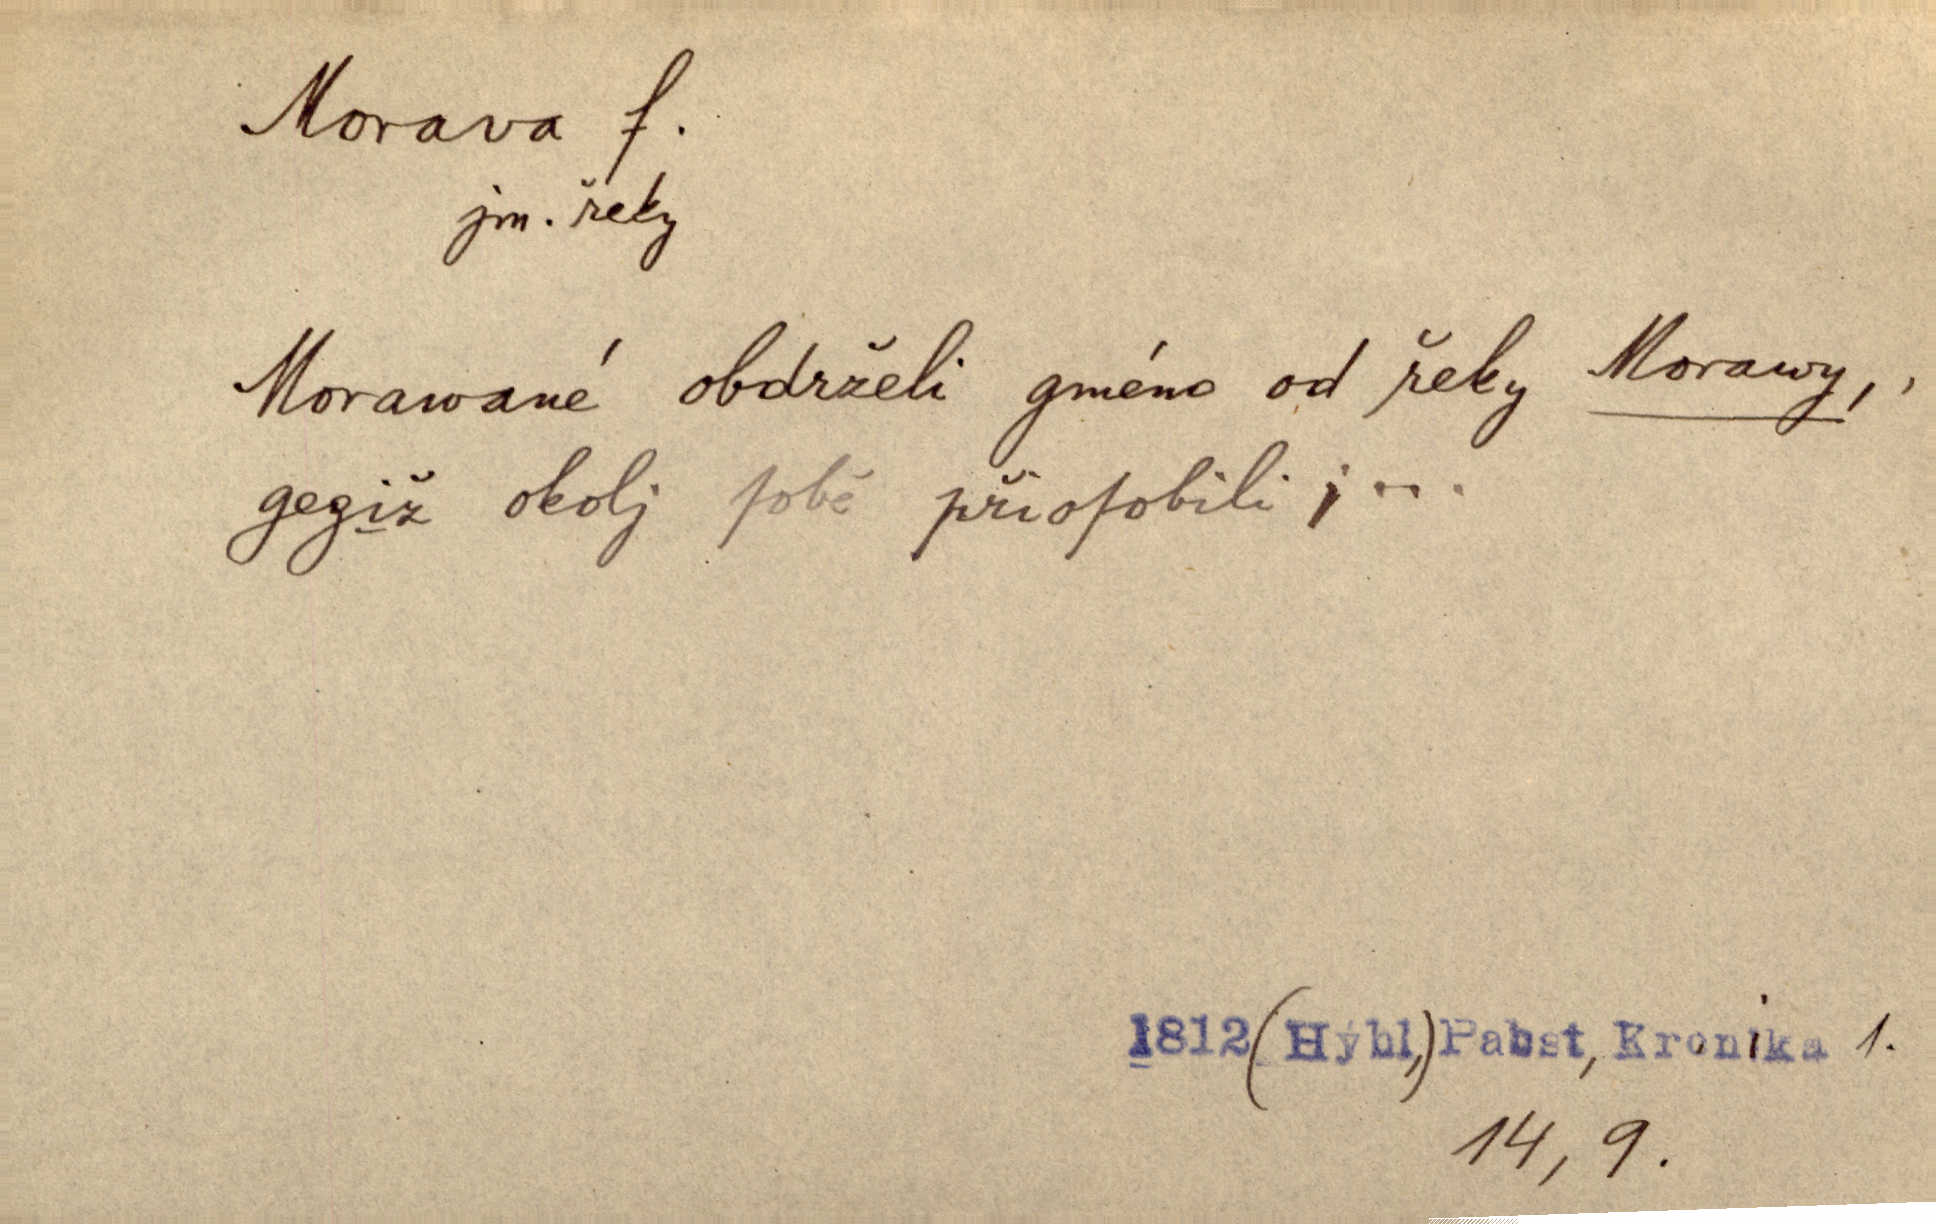 Morava f.
jm. řeky
Morawané obdrželi gméno od řeky Morawy,
gegiž okolj ſobě přioſobili; ...
1812 (Hýbl,) Pabst, Kronika 1.
14, 9.